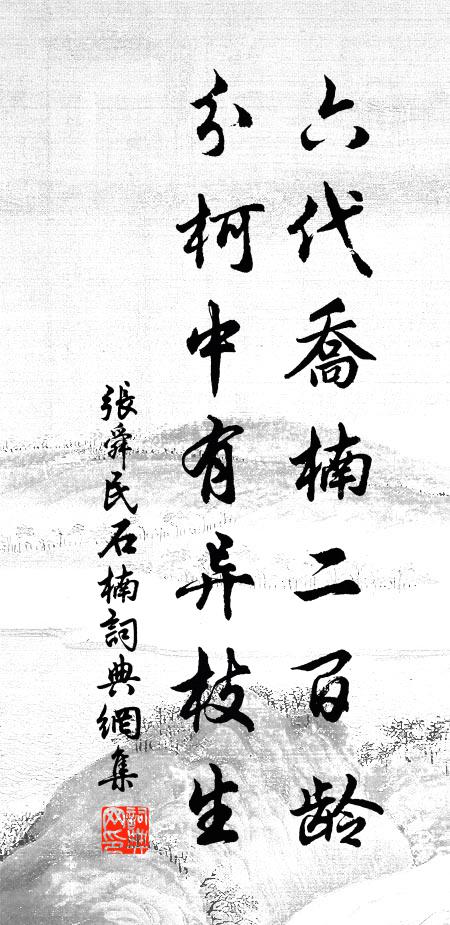 六代喬楠二百龄
分柯中有异枝生
張舜民石楠詞典網集
詞典网